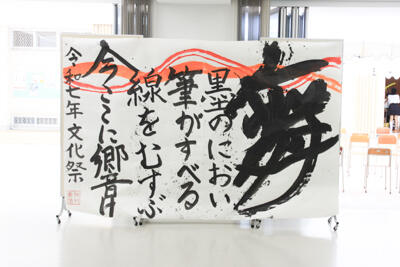 舞
墨のにおい
筆がすべる
線をむすぶ
今ここに響け
令和七年 文化祭